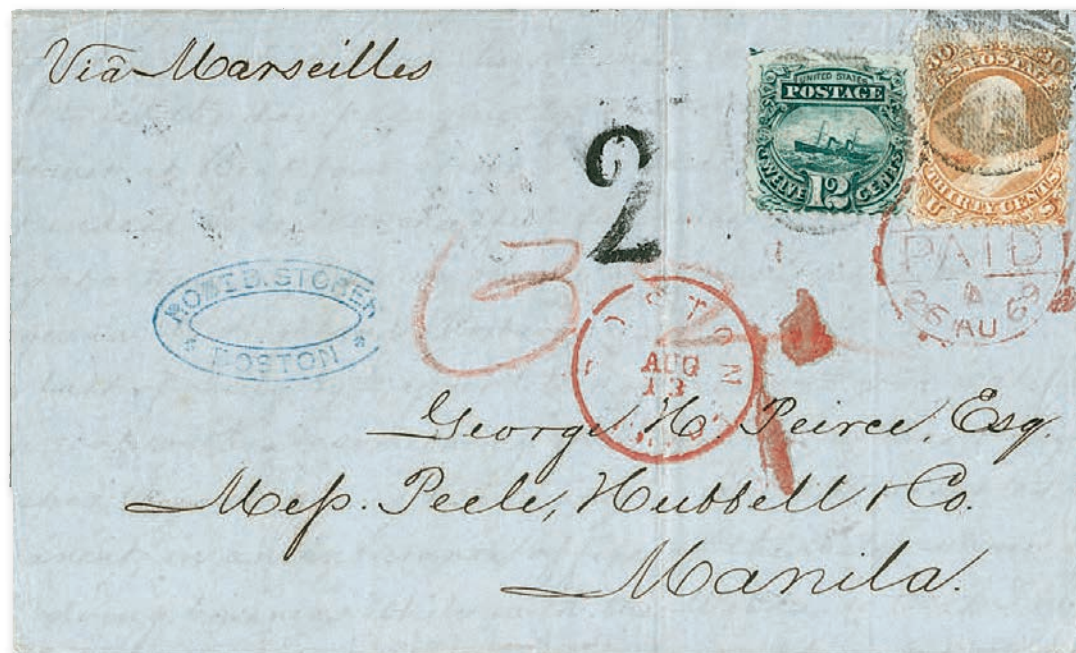 Viâ Marseilles
UNITED STATES
POSTAGE
TWELVE 12 CENTS
30 30
U.S. POSTAGE
THIRTY CENTS
U S
2
32
PAID
A
26 AU 69
ROBT B. STORER
* BOSTON *
BOSTON
AUG
13
George H. Peirce, Esq.
Mess. Peele, Hubbell & Co.
Manila.